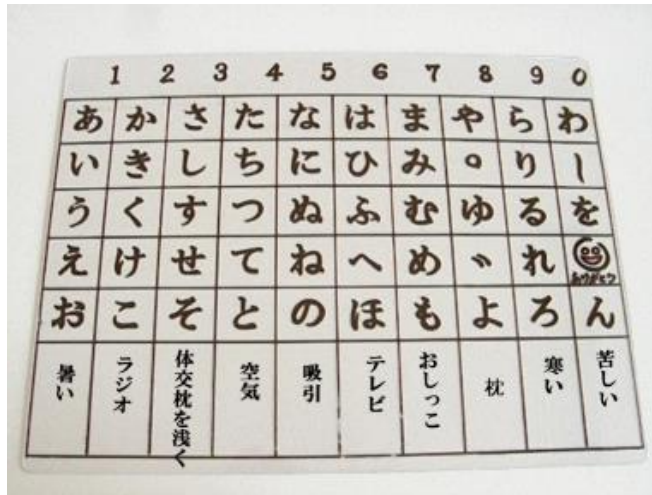 1 2 3 4 5 6 7 8 9 0
あ か さ た な は ま や ら わ
い き し ち に ひ み ゜ り ー
う く す つ ぬ ふ む ゆ る を
え け せ て ね へ め ゛ れ ありがとう
お こ そ と の ほ も よ ろ ん
暑い
ラジオ
体交枕を浅く
空気
吸引
テレビ
おしっこ
枕
寒い
苦しい